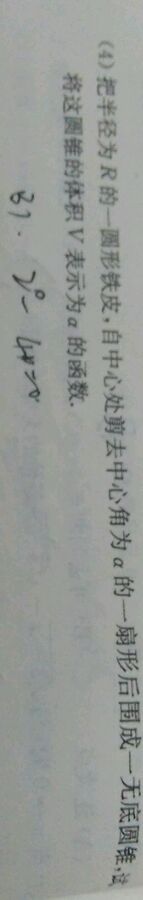 (4) 把半径为 R 的一圆形铁皮,自中心处剪去中心角为 α 的一扇形后围成一无底圆锥,试
将这圆锥的体积 V 表示为 α 的函数.